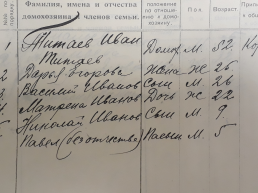 Фамилия, имена и отчества домохозяина, членов семьи.
положение по отноше- нию к домохозяину.
Пол.
Возраст
1 Титаев Иван Домох. М. 52.
Титаев
2 Дарья Егорова Жена Ж 26
Василий Иванов Сын М. 26
Матрена Иванов Дочь Ж 22
Николай Иванов Сын М. 9.
Павел (без отчества) Пасын М. 5